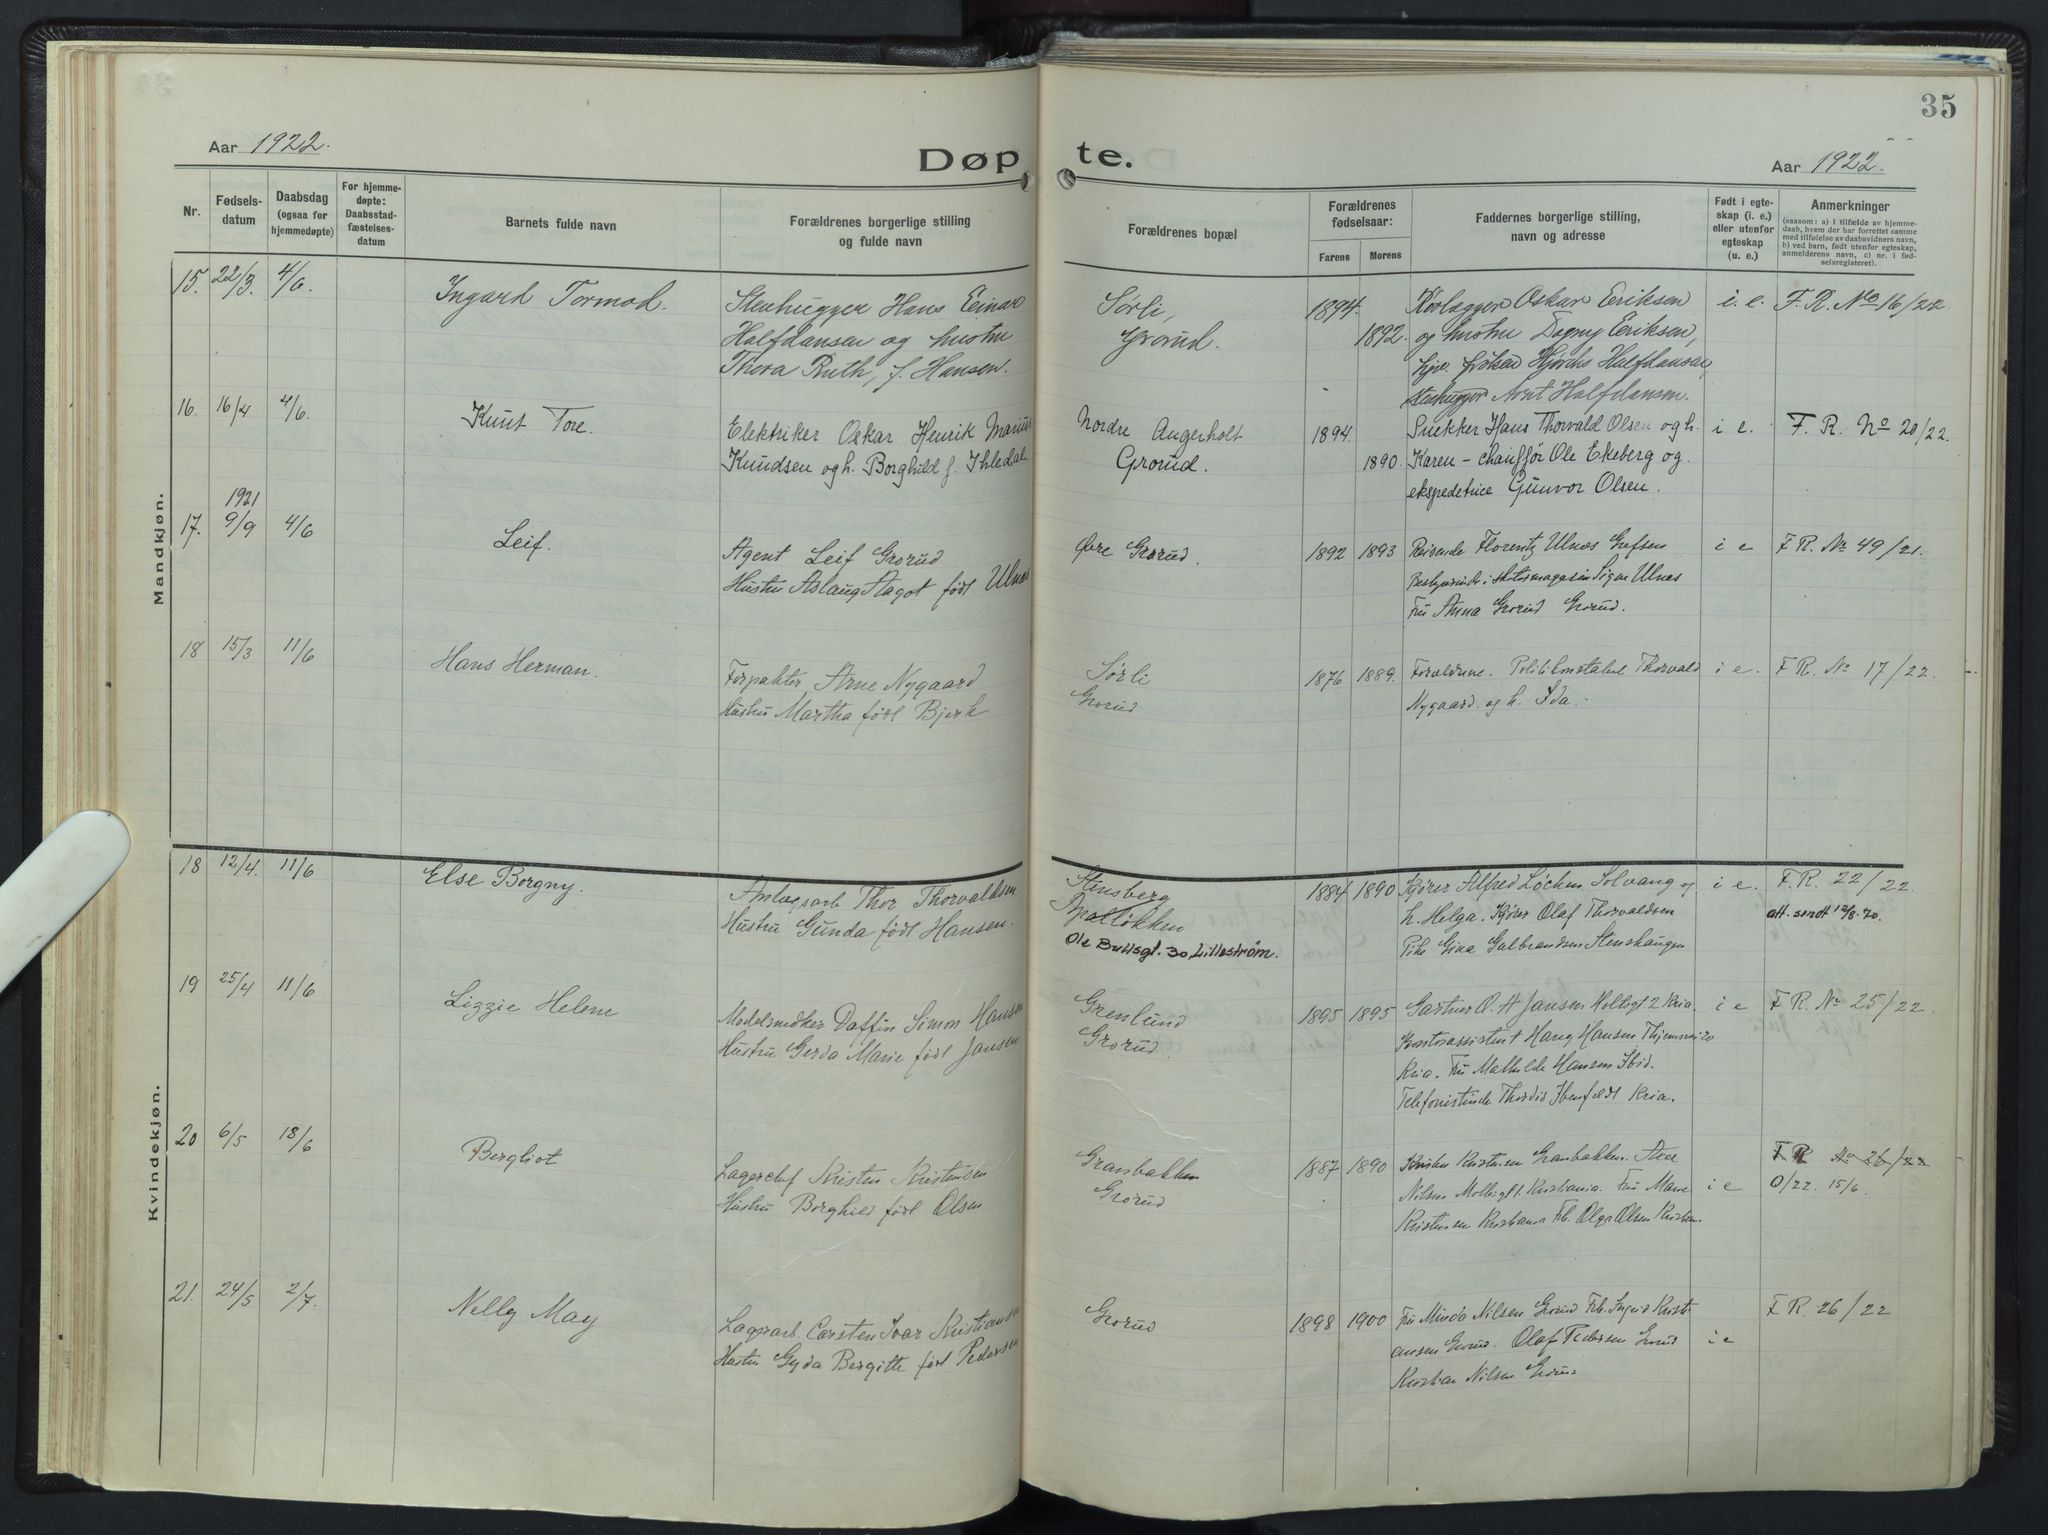 35
Aar 1922.
Døpte.
Aar 1922.
Nr.
Fødsels-
datum
Daabsdag
(ogsaa for
hjemmedøpte)
For hjemme-
døpte:
Daabsstad-
fæstelses-
datum
Barnets fulde navn
Forældrenes borgerlige stilling
og fulde navn
Forældrenes bopæl
Forældrenes
fødselsaar:
Farens
Morens
Faddernes borgerlige stilling,
navn og adresse
Født i egte-
skap (i. e.)
eller utenfor
egteskap
(u. e.)
Anmerkninger
(saasom: a) i tilfælde av hjemme-
daab, hvem der har forrettet samme
med tilføielse av daabsvidners navn,
b) ved barn, født utenfor egteskap,
anmelderens navn, c) nr. i fød-
selsregisteret).
Mandkjøn.
15. 22/3. 4/6.
Ingard Tormod.
Stenhugger Hans Einar
Halfdansen og hustru
Thora Ruth, f. Hansen.
Sørli,
Grorud.
1894. 1892.
Oskar Eriksen
og hustru Dagny Eriksen,
frøken Halfdansen,
stenhugger Arnt Halfdansen.
i. e.
F. R. No 16/22
16. 16/4 4/6.
Knut Tore.
Elektriker Oskar Henrik Marius
Knudsen og h. Borghild f. Ihledal
Nordre Angerholt
Grorud.
1894. 1890.
Snekker Hans Thorvald Olsen og h.
Karen - chauffør Ole Ekeberg og
ekspedetrice Gunvor Olsen.
i e.
F. R. No 20/22.
1921
17. 9/9 4/6
Leif.
Agent Leif Grorud
Hustru Aslaug Aagot født Ulnes
Øvre Grorud.
1892 1893
Reisende Florentz Ulnes Grefsen
Bestyrerinde i Signe Ulnes
Fru Anna Grorud Grorud.
i e
F R. No 49/21.
18 15/3 11/6
Hans Herman.
Forpakter Arne Nygaard
Hustru Martha født Bjerk
Sørli
Grorud
1876 1889.
Forældrene. Politikonstabel Thorvald
Nygaard og h. Ida.
i e.
F R. No 17/22.
Kvindekjøn.
18 12/4. 11/6
Else Borgny.
Anlægsarb Thor Thorvaldsen
Hustru Gunda født Hansen.
Stensberg
Apalløkken
Ole Bullsgt. 30, Lillestrøm.
1884 1890
Kjører Alfred Løchen Solvang og
h. Helga. Kjører Olaf Thorvaldsen
Pike Gina Gulbrandsen Stenshaugen
i e.
F. R. 22/22.
att. sendt 12/8-70.
19 25/4 11/6
Lizzie Helene
Modelsnedker Daffin Simon Hansen
Hustru Gerda Marie født Jansen
Grenlund
Grorud
1895 1895
Gartner O. H Jansen Holtegt 2 Kria.
Kontorassistent Hang Hansen 20
Kria. Fru Mathilde Hansen Ibid.
Telefonistinde Thordis Ibenfeldt Kria.
i e
F R. No 25/22.
20 6/5 18/6
Bergliot
Lagerchef Kristen Kristensen
Hustru Borghild født Olsen
Granbakken
Grorud
1887 1890
Kristen Kristensen Granbakken.
Nilsen Kristiania. Fru Marie
Kristensen Kristiania Frk. Olga Olsen Kristian.
i e
F R No 26/22
0/22. 15/6.
21. 24/5 2/7.
Nelly May
Lagerarb. Carsten Ivar Kristiansen
Hustru Gyda Bergitte født Pedersen
Grorud
1898 1900
Fru Minda Nilsen Grorud Frk. Ingrid Kristi-
ansen Grorud. Olaf Pedersen Grorud
Kristian Nilsen Grorud
i e
F R. 26/22